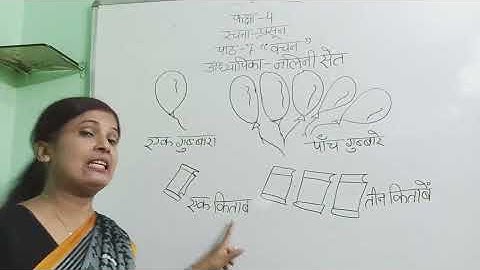 कक्षा-4
रचना-प्रसून
पाठ-7 "वचन"
अध्यापिका-नलिनी सेत
एक गुब्बारा
पाँच गुब्बारे
एक किताब
तीन किताबें